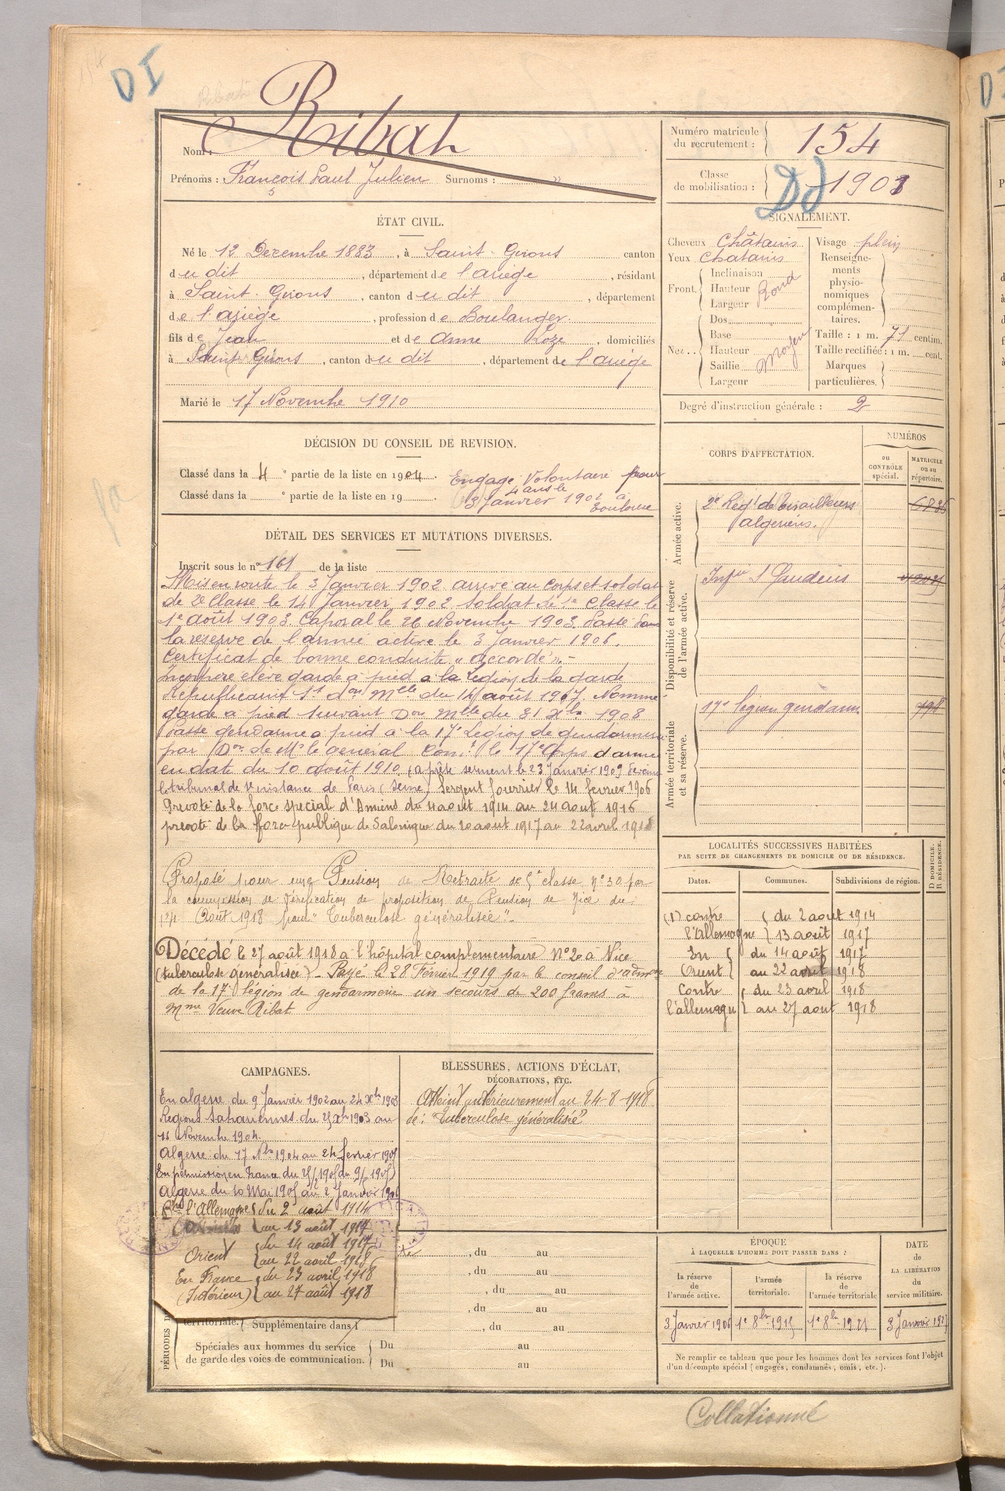 DI
Nom : Ribat
Prénoms : François Paul Julien Surnoms : "
Numéro matricule du recrutement : 154
Classe de mobilisation : 1901
ÉTAT CIVIL.
Né le 12 Decembre 1883, à Saint-Girons canton
du dit, département de l'ariège, résidant
à Saint-Girons, canton du dit, département
de l'ariège, profession de Boulanger
fils de Jean et de Anne Roze, domiciliés
à Saint Girons, canton du dit, département de l'ariège
Marié le 17 Novembre 1910
SIGNALEMENT.
Cheveux Châtains
Yeux Chatains
Front. Inclinaison Hauteur Largeur Rond
Nez. Dos Base Hauteur Saillie Largeur Moyen
Visage plein
Renseignements physionomiques complémentaires.
Taille : 1 m. 71 centim.
Taille rectifiée : 1 m. cent.
Marques particulières.
Degré d'instruction générale : 2
DÉCISION DU CONSEIL DE REVISION.
Classé dans la 4e partie de la liste en 1904. Engagé Volontaire pour
4 ans le
Classé dans la e partie de la liste en 19 3 Janvier 1902 à
Toulouse
DÉTAIL DES SERVICES ET MUTATIONS DIVERSES.
Inscrit sous le n° 161 de la liste
Mis en route le 3 Janvier 1902 arrivé au corps et soldat
de 2e Classe le 14 Janvier 1902 soldat de 1e Classe le
1e août 1903 Caporal le 26 Novembre 1903. Passé dans
la réserve de l'armée active le 3 Janvier 1906.
Certificat de bonne conduite "accordé"
élève garde à pied à la Légion de la garde
Républicaine St don Mlle du 14 août 1907. Nommé
garde à pied suivant Don Mlle du 31 Xbre 1908
Passé gendarme à pied à la 17e Légion de gendarmerie
par Don de Mr le Général Comt le 17e Corps d'armée
en dat du 10 août 1910. (a prêté serment le 23 Janvier 1909 devant
le tribunal de 1e instance de Paris (Seine) Sergent fourrier le 14 fevrier 1906
Prévoté de la force special d'Amiens du 4 aout 1914 au 24 aout 1916
prevoté de la force publique de Salonique du 20 aout 1917 au 22 avril 1918
Proposé pour une Pension de Retraite de 5e classe n° 30 par
la commission de Vérification de proposition de Pension de Nice du
24 Août 1918 pour "Tuberculose généralisée".
Décédé le 27 août 1918 à l'hôpital complementaire N° 20 à Nice
(tuberculose généralisée) - Payé le 28 Février 1919 par le conseil d'admon
de la 17e légion de gendarmerie un secours de 200 francs à
Mme Veuve Ribat
CORPS D'AFFECTATION.
NUMÉROS
AU CONTRÔLE spécial.
MATRICULE ou au répertoire.
Armée active.
2e Régt de tirailleurs
algériens.
Disponibilité et réserve de l'armée active.
Infie St Gaudens
Armée territoriale et sa réserve.
17e légion gendarm
LOCALITÉS SUCCESSIVES HABITÉES
PAR SUITE DE CHANGEMENTS DE DOMICILE OU DE RÉSIDENCE.
D DOMICILE. R RÉSIDENCE.
Dates. Communes. Subdivisions de région.
(1) contre du 2 aout 1914
l'allemagne 13 août 1917
En du 14 août 1917
Orient au 22 avril 1918
Contre du 23 avril 1918
l'allemagne au 27 aout 1918
CAMPAGNES.
En algerie du 9 Janvier 1902 au 24 Xbre 1903
Régions sahariennes du 25 Xbre 1903 au
16 Novembre 1904.
Algérie du 17 Nbre 1904 au 24 fevrier 1905
En permission en France du
Algerie du 10 Mai 1905 au 2 Janvier 1906
l'Allemagne du 2 août 1914
au 13 août 1917
Orient du 14 août 1917
au 22 avril 1918
En France du 23 avril 1918
(Intérieur) au 27 août 1918
BLESSURES, ACTIONS D'ÉCLAT,
DÉCORATIONS, ETC.
Atteint antérieurement au 24-8-1918
de : "Tuberculose généralisée"
, du au
, du au
, du au
, du au
territoriale. Supplémentaire dans , du au
PÉRIODES
Spéciales aux hommes du service
de garde des voies de communication. Du au
Du au
ÉPOQUE
À LAQUELLE L'HOMME DOIT PASSER DANS :
la réserve de l'armée active. l'armée territoriale. la réserve de l'armée territoriale
DATE DE LA LIBÉRATION DU service militaire.
3 Janvier 1906 1e 8bre 1915 1e 8bre 1921 3 Janvier 1927
Ne remplir ce tableau que pour les hommes dont les services font l'objet
d'un décompte spécial (engagés, condamnés, omis, etc.).
Collationné